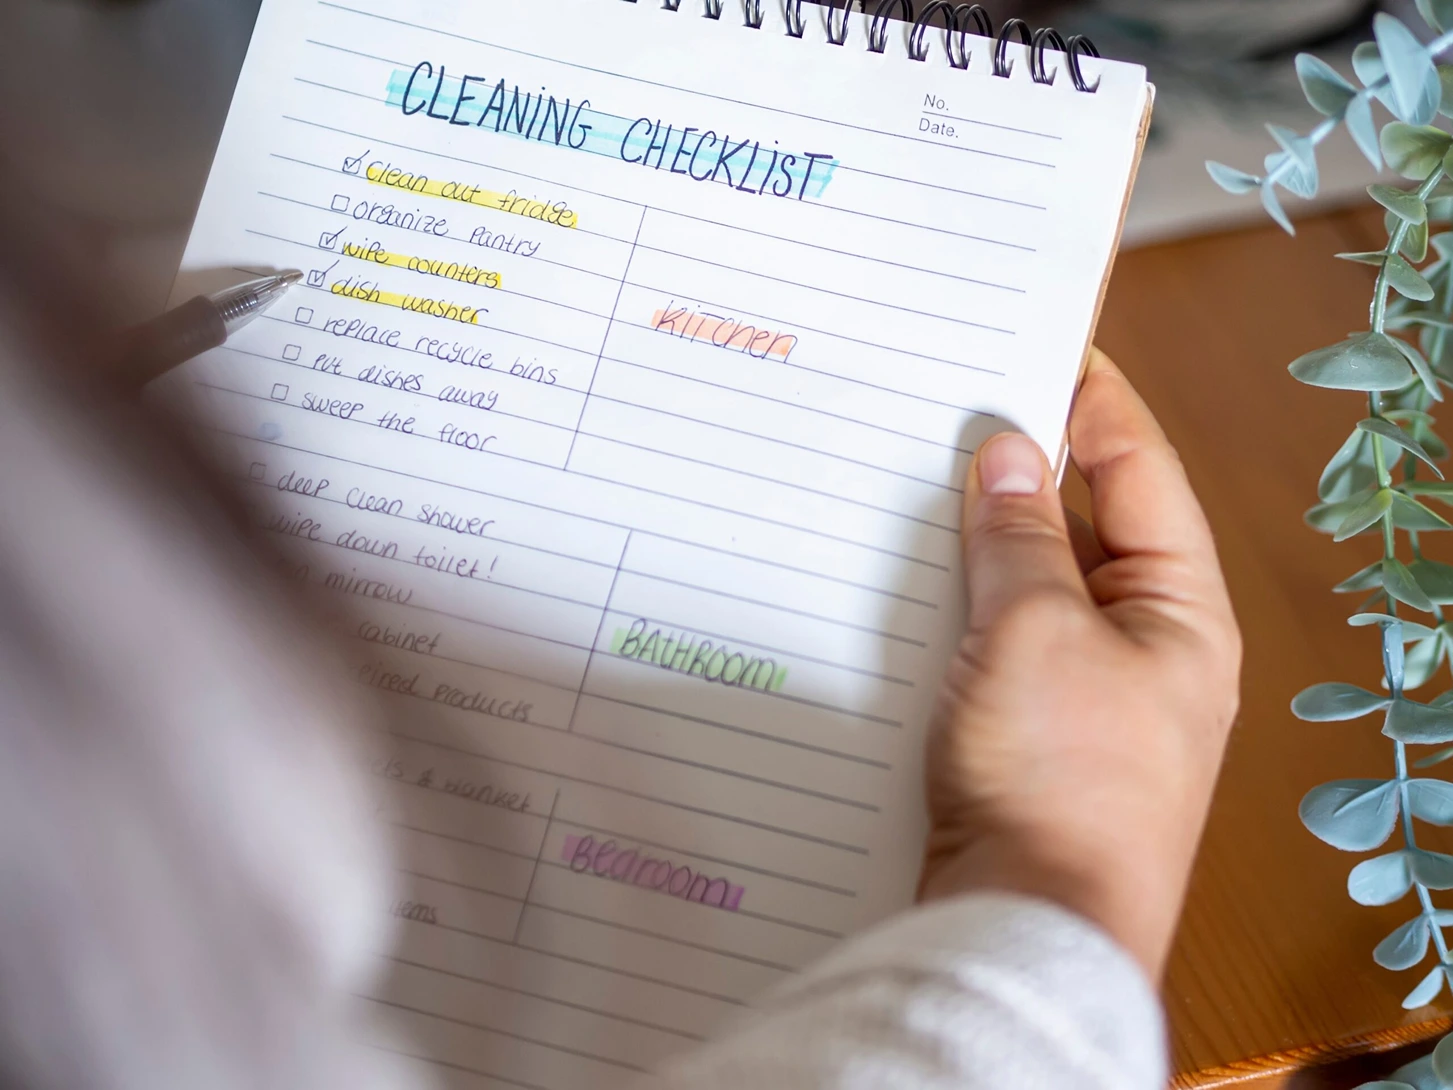 No.
Date.
CLEANING CHECKLIST
Clean out fridge
organize pantry
wipe counters
dish washer
replace recycle bins
put dishes away
sweep the floor
KITCHEN
deep clean shower
wipe down toilet!
mirrow
cabinet
products
BATHROOM
& blanket
Bedroom
items